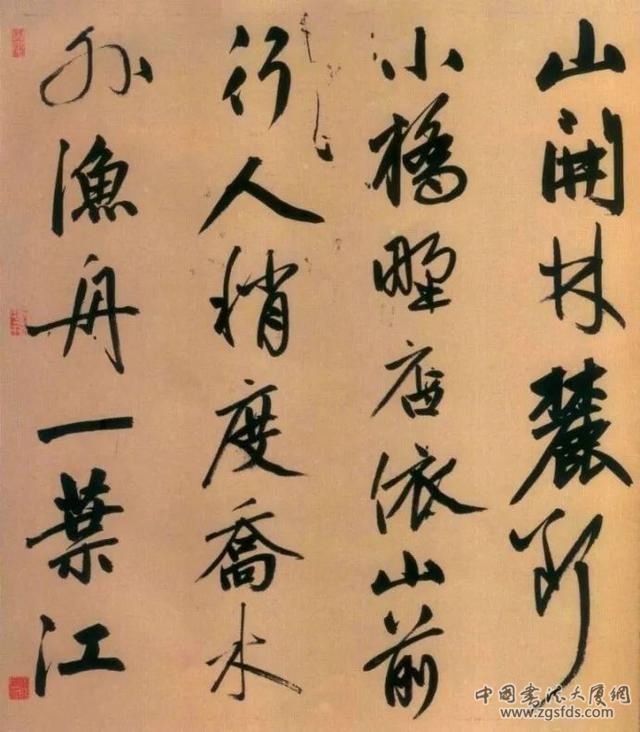 山開林麓斷
小橋野店依山前
行人稍度喬木
外漁舟一葉江
中國書法大廈網
www.zgsfds.com